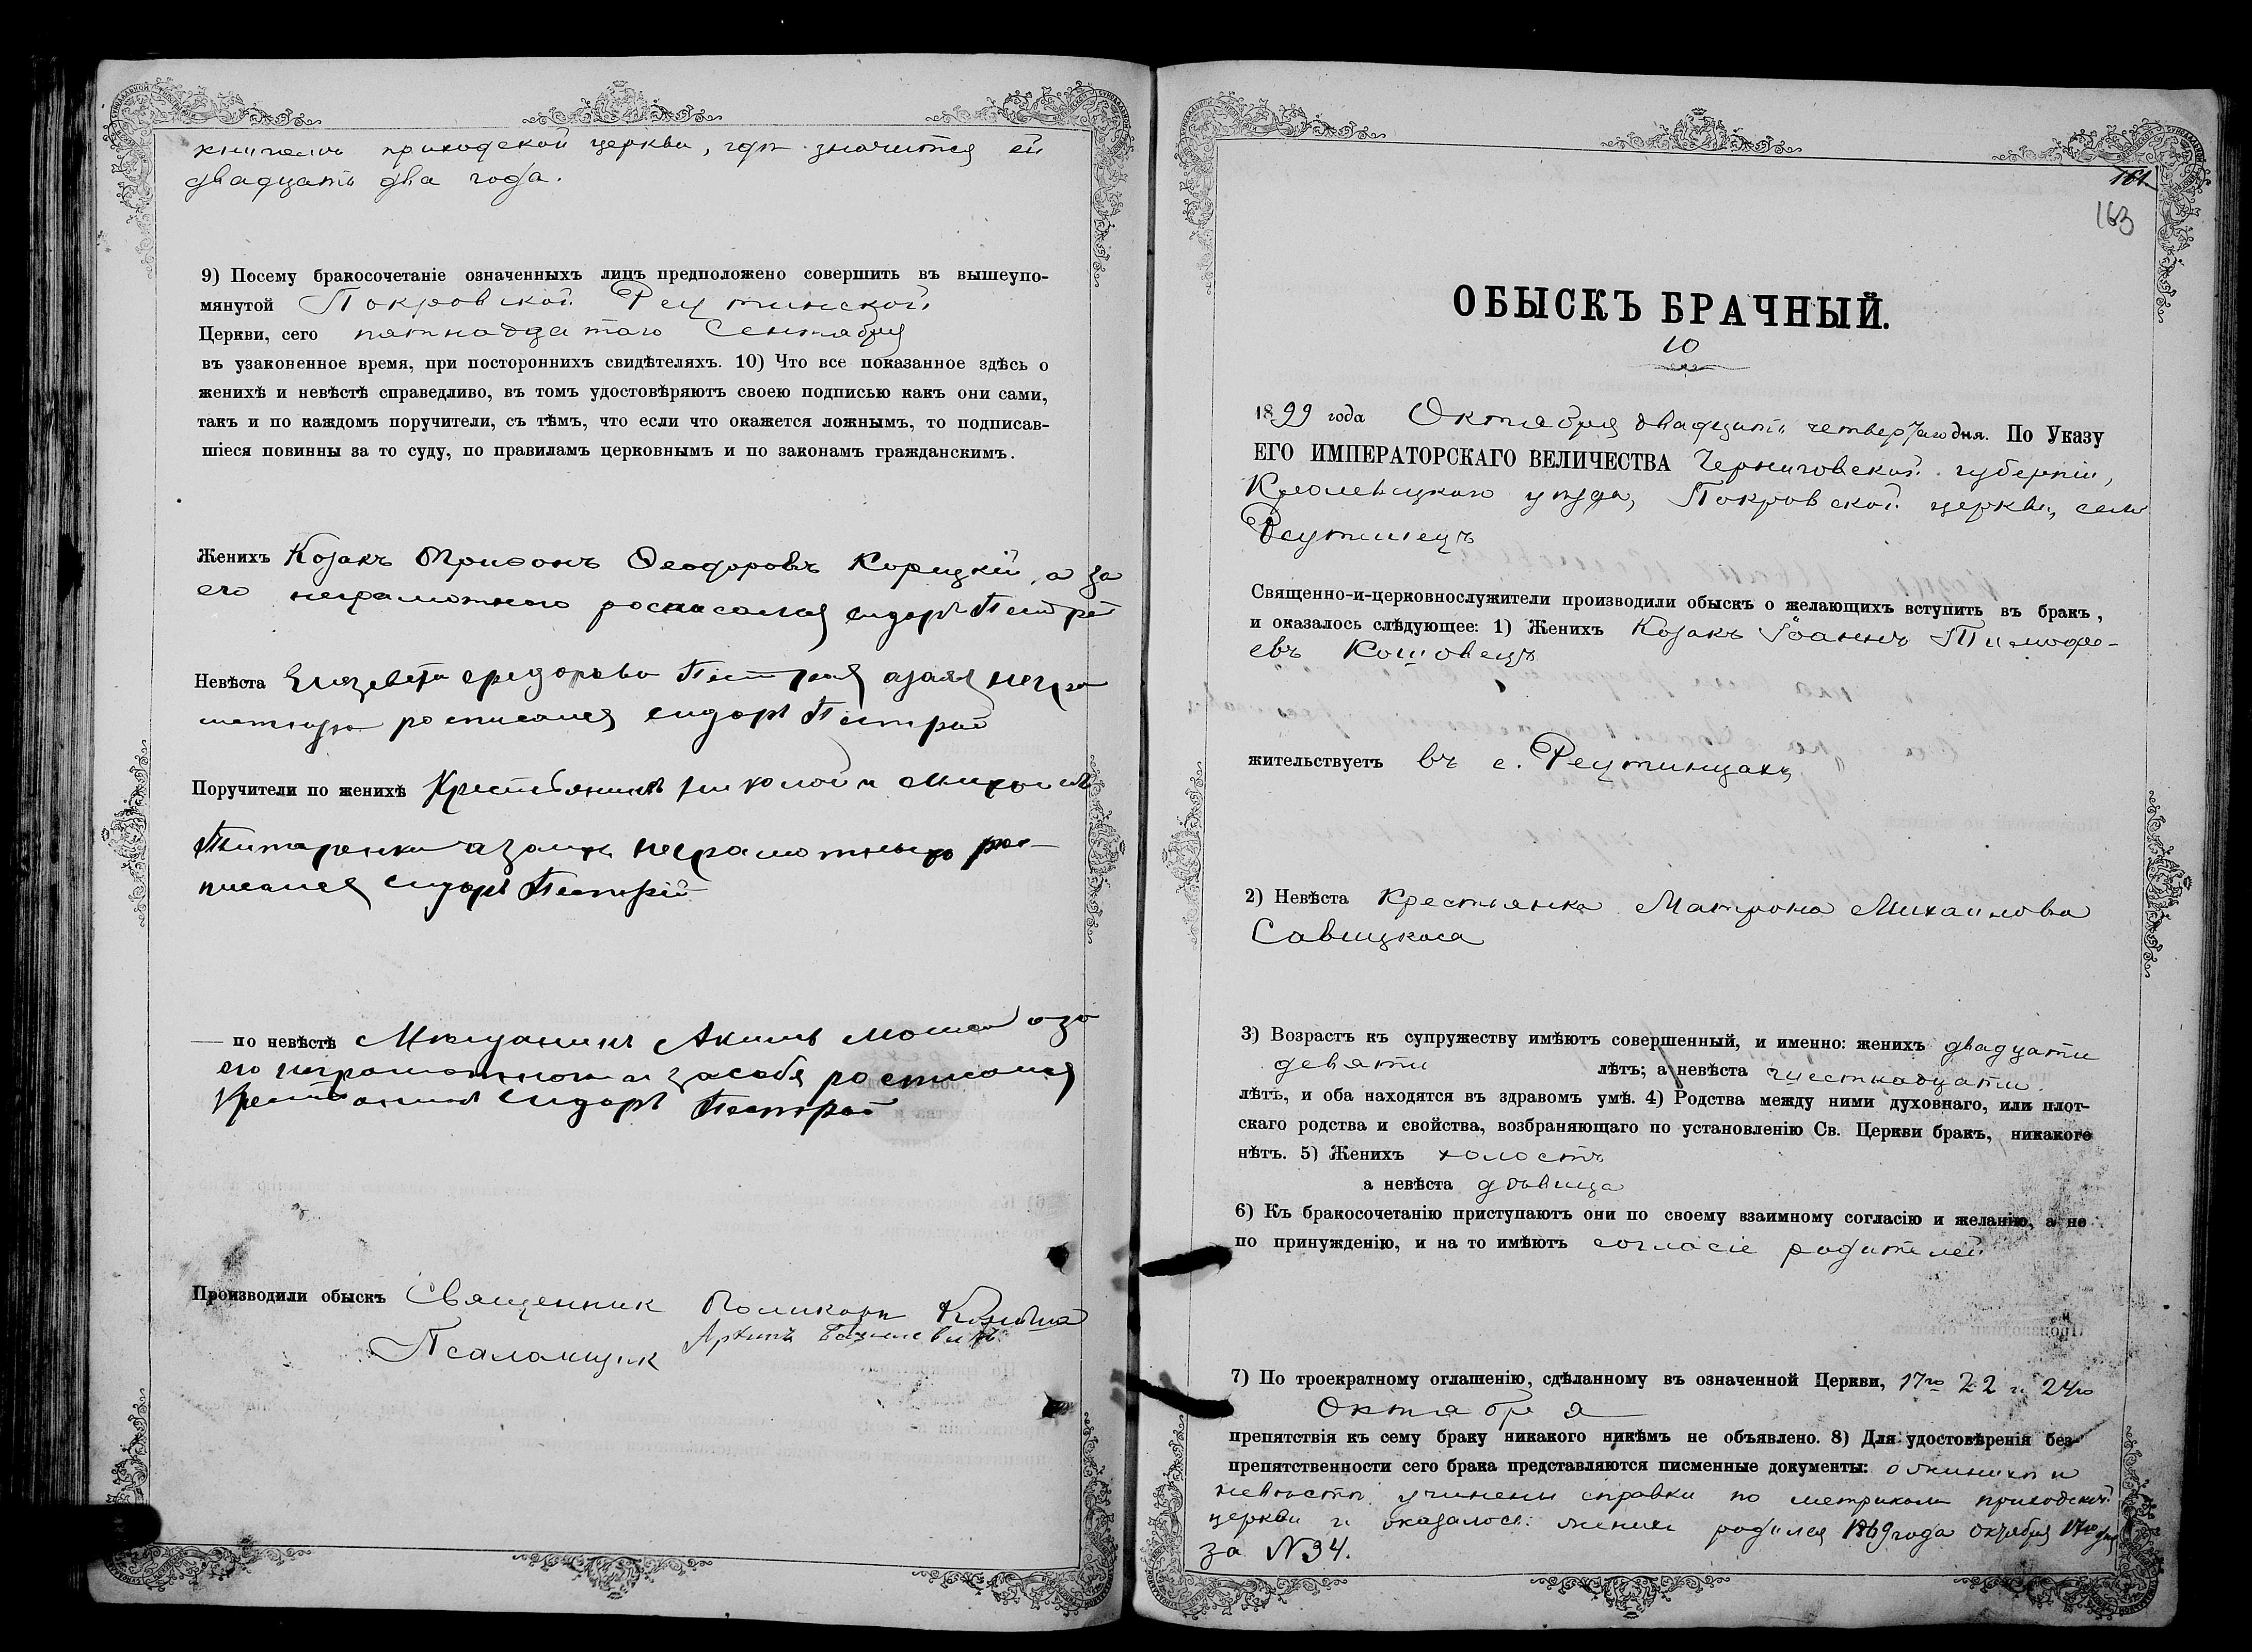 книгамъ приходской церкви, гдѣ значится ей
двадцать два года.
9) Посему бракосочетаніе означенныхъ лицъ предположено совершить въ вышеупо-
мянутой Покровской Реутинской
Церкви, сего пятнадцатаго Сентября
въ узаконенное время, при постороннихъ свидѣтеляхъ. 10) Что все показанное здѣсь о
женихѣ и невѣстѣ справедливо, въ томъ удостовѣряютъ своею подписью какъ они сами,
такъ и по каждомъ поручители, съ тѣмъ, что если что окажется ложнымъ, то подписав-
шіеся повинны за то суду, по правиламъ церковнымъ и по законамъ гражданскимъ.
Женихъ Козакъ Трифонъ Феодоровъ Корицкій, а за
его неграмотного росписался Сидоръ Пестрей
Невѣста Елизевета Пестрая
росписался сидоръ Пестрой
Поручители по женихѣ Крестьянинъ николой и михоилъ
неграмотныхъ рос-
писался Сидоръ Пестрій
— по невѣстѣ Мѣщанинъ Акимъ а за
его неграмотного и засебя росписался
Крестьянинъ Сидоръ Пестрой
Производили обыскъ Священник Поликарп
Псаломщик Архипъ
164
163
ОБЫСКЪ БРАЧНЫЙ.
10
1899 года Октября двадцать четвертаго дня. По Указу
ЕГО ИМПЕРАТОРСКАГО ВЕЛИЧЕСТВА Черниговской губерніи,
Кролевецкаго уѣзда, Покровской церкви, села
Реутинецъ
Священно-и-церковнослужители производили обыскъ о желающихъ вступить въ бракъ,
и оказалось слѣдующее: 1) Женихъ Козакъ Іоаннъ Тимофе-
евъ Кошовецъ
жительствуетъ въ с. Реутинцахъ
2) Невѣста Крестьянка Матрона Михаилова
Савицкая
3) Возрастъ къ супружеству имѣютъ совершенный, и именно: женихъ двадцати
девяти лѣтъ; а невѣста шестнадцати
лѣтъ, и оба находятся въ здравомъ умѣ. 4) Родства между ними духовнаго, или плот-
скаго родства и свойства, возбраняющаго по установленію Св. Церкви бракъ, никакого
нѣтъ. 5) Женихъ холостъ
а невѣста дѣвица
6) Къ бракосочетанію приступаютъ они по своему взаимному согласію и желанію, а не
по принужденію, и на то имѣютъ согласіе родителей
7) По троекратному оглашенію, сдѣланному въ означенной Церкви, 17го 22 и 24го
Октября
препятствія къ сему браку никакого никѣмъ не объявлено. 8) Для удостовѣренія без-
препятственности сего брака представляются писменные документы: о женихѣ и
невѣстѣ учинены справки по метрикамъ приходской
церкви и оказалось: жених родился 1869 года октября 17го дня
за №34.